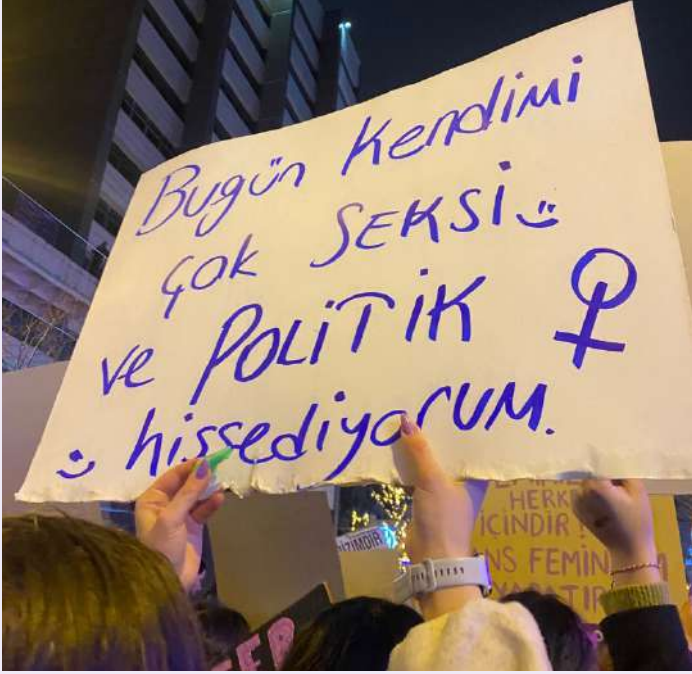 Bugün Kendimi
çok SEKSİ
ve POLİTİK ♀
hissediyorUM.
HERK
İÇİNDİR
NS FEMİN